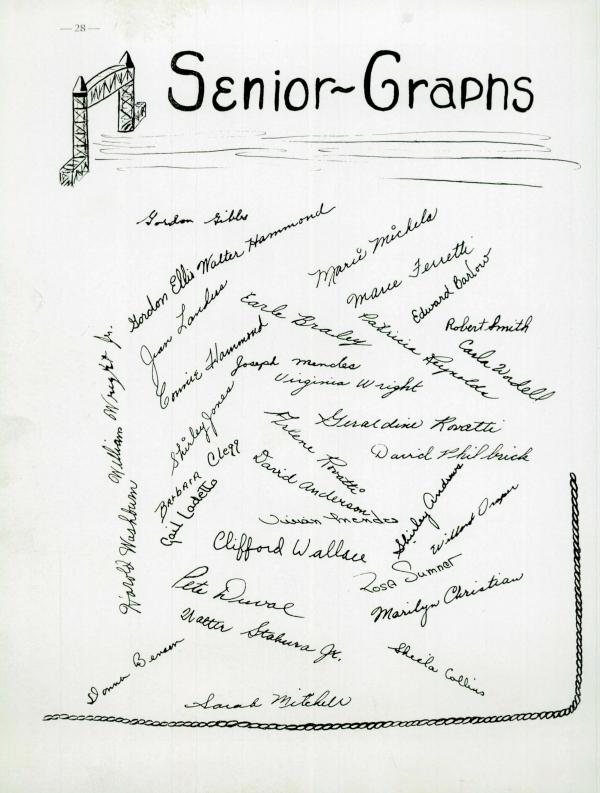 — 28 —
Senior~Graphs
Gordon Gibbs
Gordon Ellis
Walter Hammond
Marie Michels
Marie Ferretti
Edward Barlow
Jean Landus
Earle Braley
Patricia Reynolds
Robert Smith
Carla Wordell
Connie Hammond
Joseph Mendes
Virginia Wright
William Wright Jr.
Shirley Jones
Geraldine Rovatti
Arlene Rovatti
David Philbrick
Barbara Clegg
Gail Ladetto
David Anderson
Shirley Andrews
Willard Draper
Vivian Mendes
Harold Washburn
Clifford Wallace
Rosa Sumner
Pete Duval
Marilyn Christian
Walter Stahura Jr.
Donna Benson
Sheila Collins
Sarah Mitchell